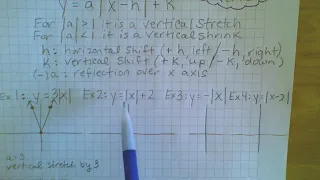 y = a|x-h| + K
For |a| > 1 it is a vertical stretch
For |a| < 1 it is a vertical shrink
h: horizontal shift (+h, left / -h, right)
K: vertical shift (+K, up / -K, down)
(-)a: reflection over x axis
Ex 1: y = 3|x| Ex 2: y = |x| + 2 Ex 3: y = -|x| Ex 4: y = |x-2|
a=3
vertical stretch by 3